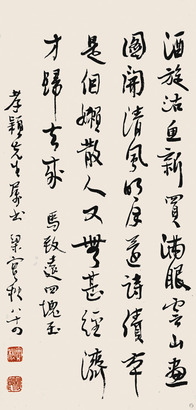 酒旋沽鱼新買满眼雲山畫
圖開清風明月還詩債本
是個懶散人又無甚經濟
才歸去來
馬致遠四塊玉
孝穎先生屬書 梁實秋